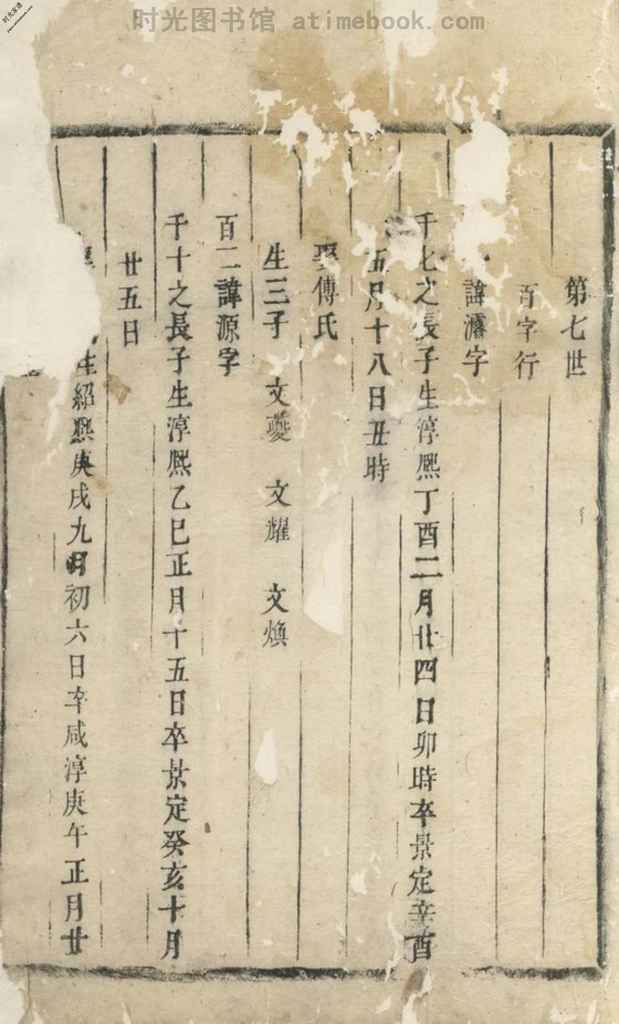 时光图书馆 atimebook.com
第七世
百字行
諱濬字
千七之長子生淳熈丁酉二月廿四日卯時卒景定辛酉
五月十八日丑時
娶傅氏
生三子 文夔 文耀 文煥
百二諱源字
千十之長子生淳熈乙巳正月十五日卒景定癸亥十月
廿五日
生紹熈庚戌九月初六日卒咸淳庚午正月廿